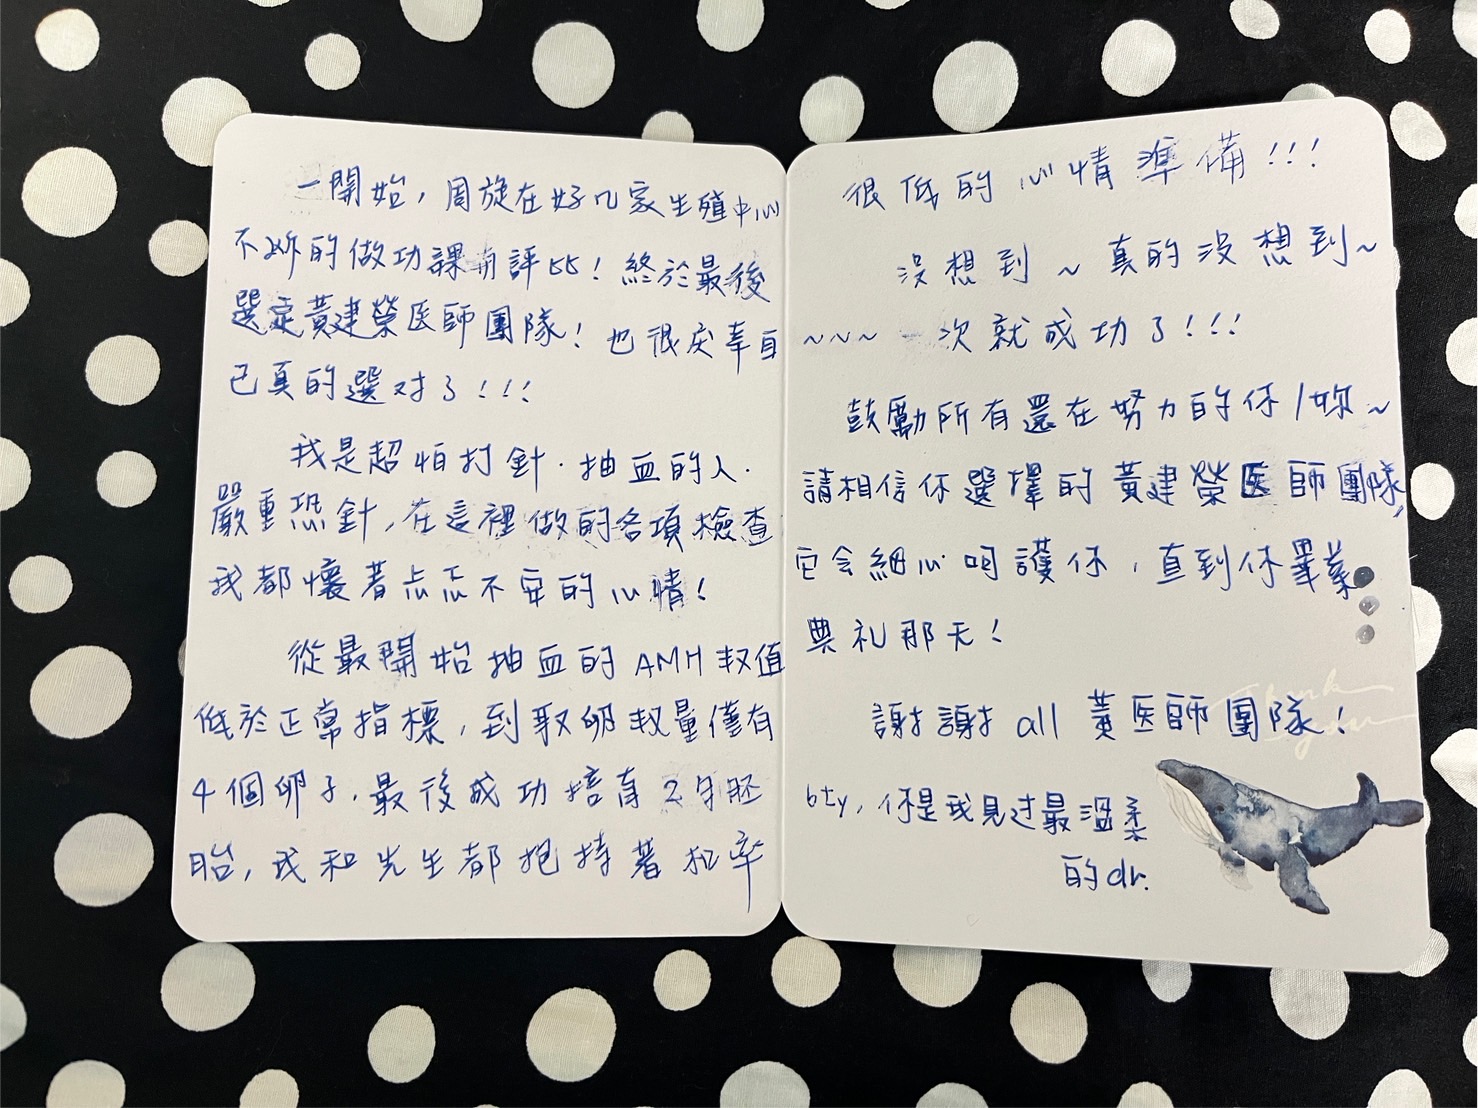 一開始，周旋在好几家生殖中心
不妳的做功課與評比！終於最後
選定黃建榮医師團隊！也很庆幸自
己真的選对了！！！
我是超怕打針．抽血的人．
嚴重恐針，在這裡做的各項檢查
我都懷著忐忑不安的心情！
從最開始抽血的AMH数值
低於正常指標，到取卵数量僅有
4個卵子．最後成功培育2身胚
胎，我和先生都抱持著机率
很低的心情準備！！！
沒想到～真的沒想到～
～～～一次就成功了！！！
鼓勵所有還在努力的你/妳～
請相信你選擇的黃建榮医師團隊，
它会細心呵護你，直到你畢業
典礼那天！
謝謝all黃医師團隊！
Thank you
bty，你是我見过最溫柔
的dr.